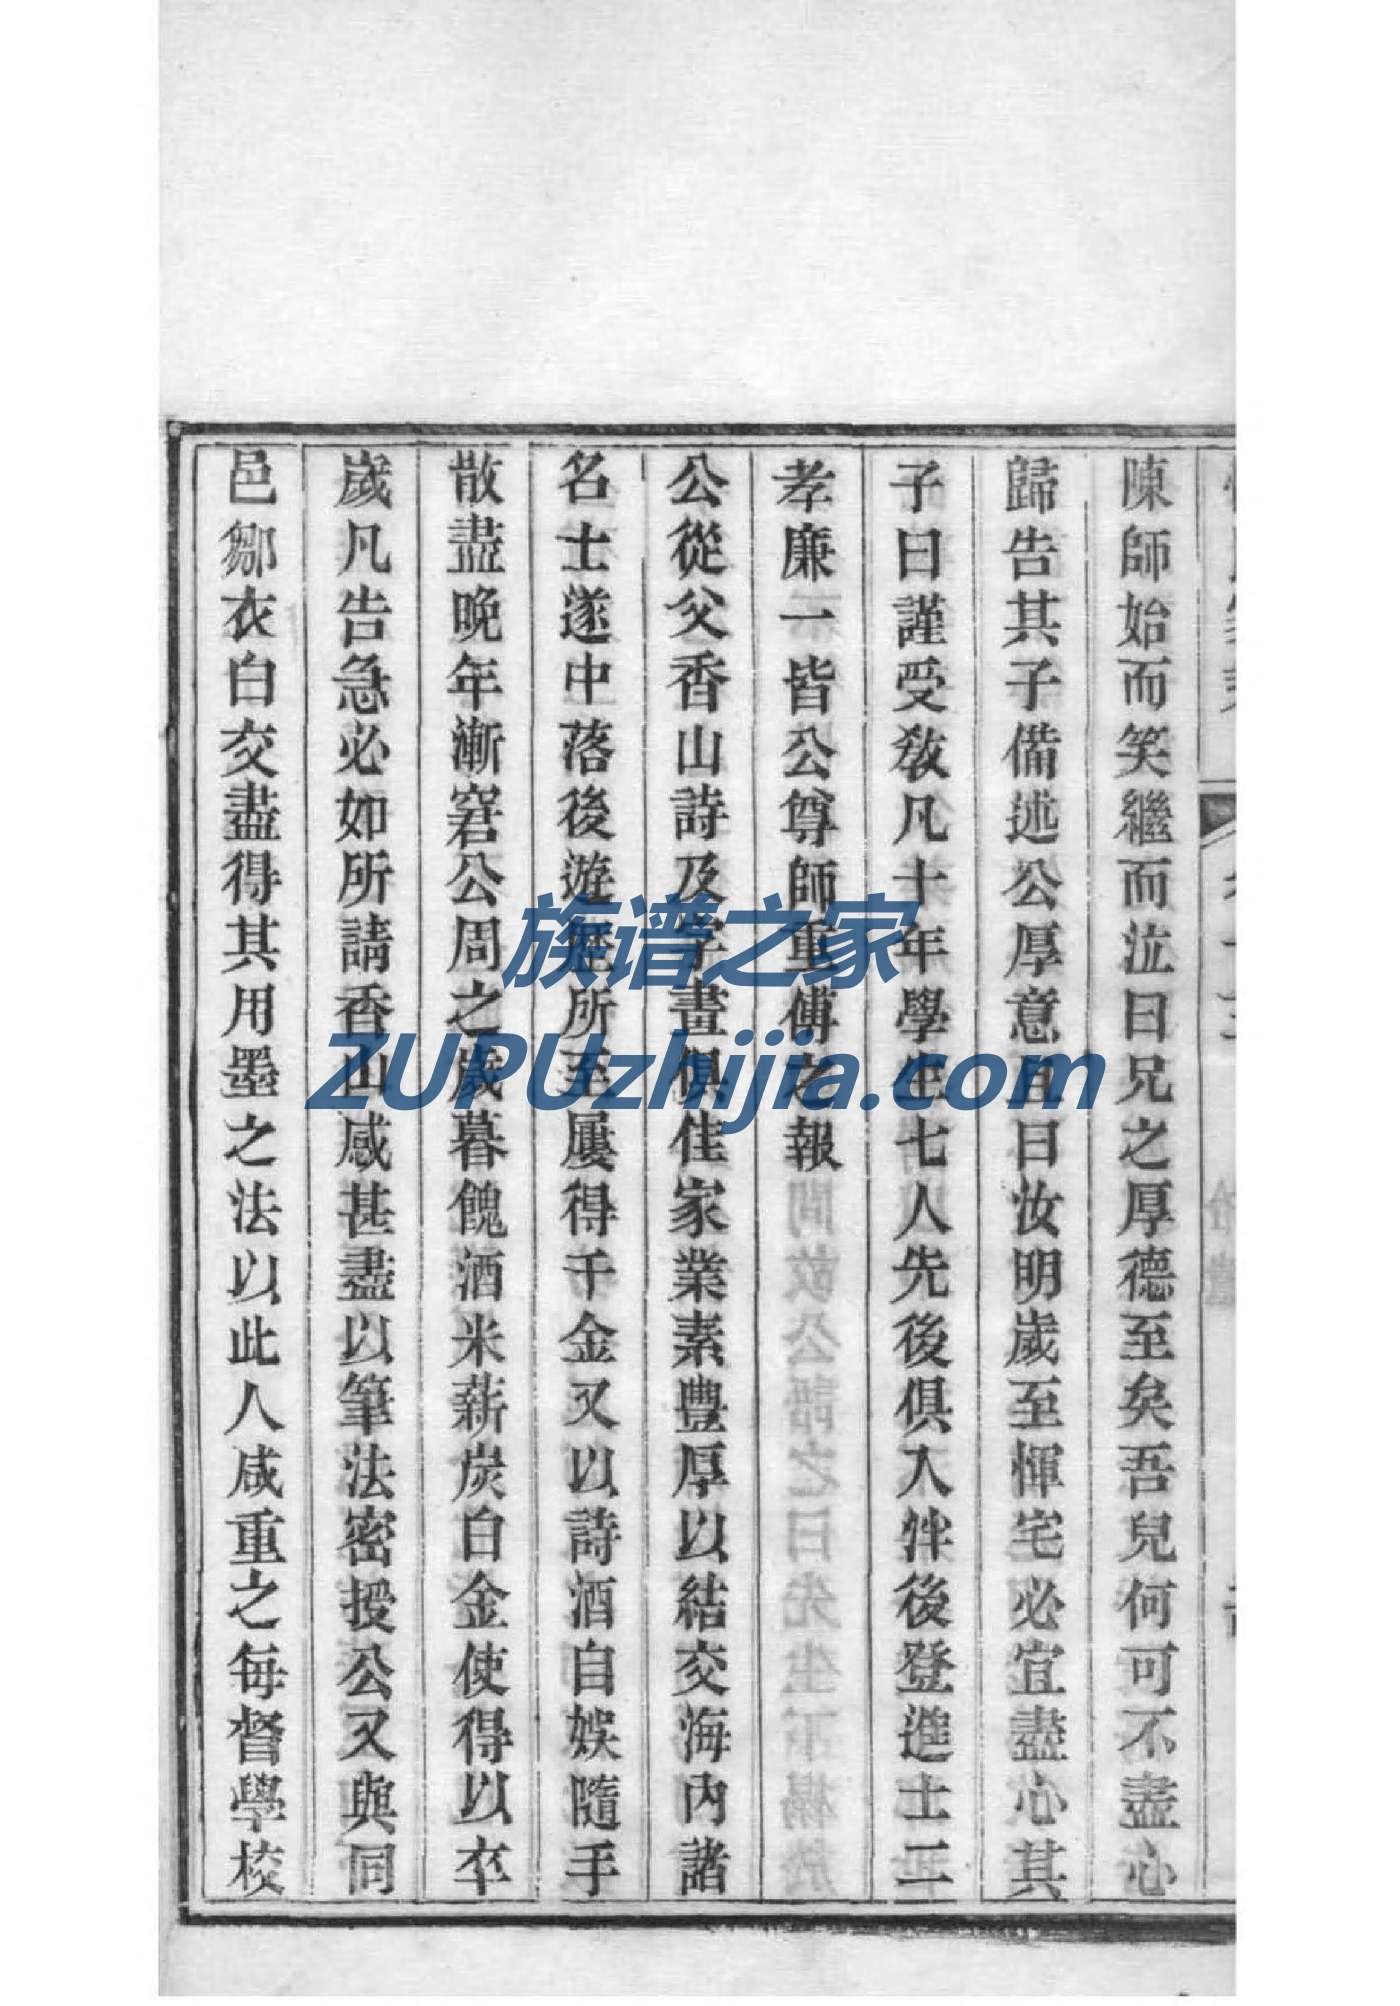 陳師始而笑繼而泣曰兄之厚德至矣吾兒何可不盡心
歸告其子備述公厚意且曰汝明歲至惲宅必宜盡心其
子曰謹受敎凡十年學生七人先後俱入泮後登進士二
孝廉一皆公尊師重傅之報
公從父香山詩及字畫俱佳家業素豐厚以結交海內諸
名士遂中落後遊 所至屢得千金又以詩酒自娛隨手
散盡晚年漸窘公周之歲暮餽酒米薪炭白金使得以卒
歲凡告急必如所請香山感甚盡以筆法密授公又與同
邑鄒衣白交盡得其用墨之法以此人咸重之每督學校
族谱之家
ZUPUzhijia.com